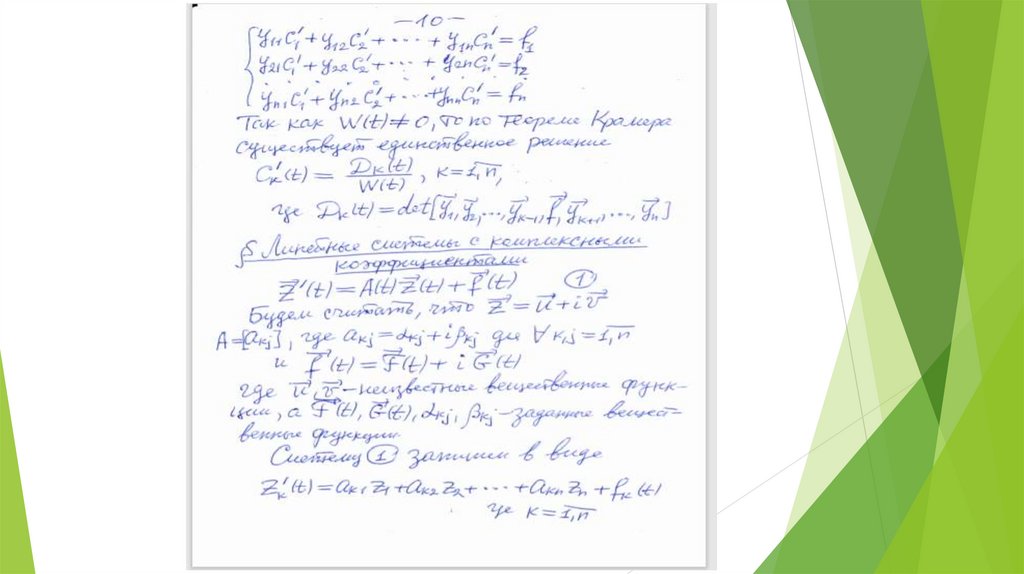 —10—
y₁₁C₁' + y₁₂C₂' + ⋯ + y₁ₙCₙ' = f₁
y₂₁C₁' + y₂₂C₂' + ⋯ + y₂ₙCₙ' = f₂
. . . . . . . .
yₙ₁C₁' + yₙ₂C₂' + ⋯ + yₙₙCₙ' = fₙ
Так как W(t) ≠ 0, то по теореме Крамера
существует единственное решение
Cₖ'(t) = Dₖ(t)/W(t), k = 1,n̅,
где Dₖ(t) = det[y⃗₁, y⃗₂, ..., y⃗ₖ₋₁, f⃗, y⃗ₖ₊₁, ..., y⃗ₙ]
§ Линейные системы с комплексными
коэффициентами
z⃗'(t) = A(t) z⃗(t) + f⃗(t) ①
Будем считать, что z⃗ = u⃗ + i v⃗
A = [aₖⱼ], где aₖⱼ = αₖⱼ + iβₖⱼ для ∀ k,j = 1,n̅
и f⃗(t) = F⃗(t) + i G⃗(t)
где u⃗, v⃗ – неизвестные вещественные функ-
ции, а F⃗(t), G⃗(t), αₖⱼ, βₖⱼ – заданные вещест-
венные функции.
Систему ① запишем в виде
zₖ'(t) = aₖ₁z₁ + aₖ₂z₂ + ⋯ + aₖₙzₙ + fₖ(t)
где k = 1,n̅